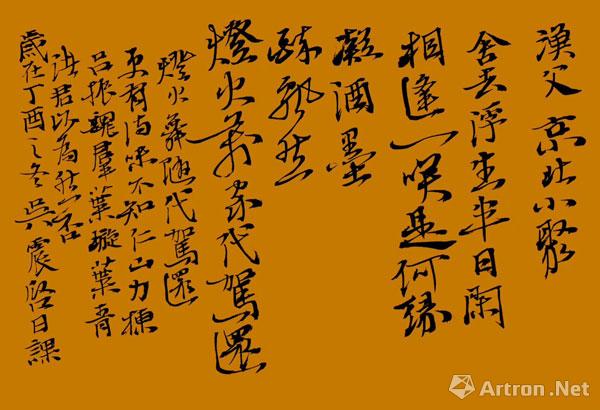 漢父京北小聚
舍去浮生半日閑
相逢一咲是何緣
凝酒墨
醉飄然
燈火萬家代駕還
燈火葬隨代駕還
更有詩味不知仁山力揀
呂振魂群葉璇葉青
洪君以為然否
歲在丁酉之冬吳震啟日課
Artron.Net